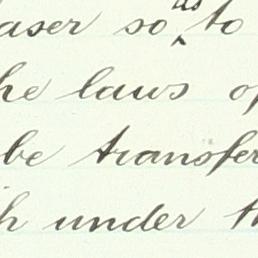 aser so as to
he laws o
be transfer
h under th